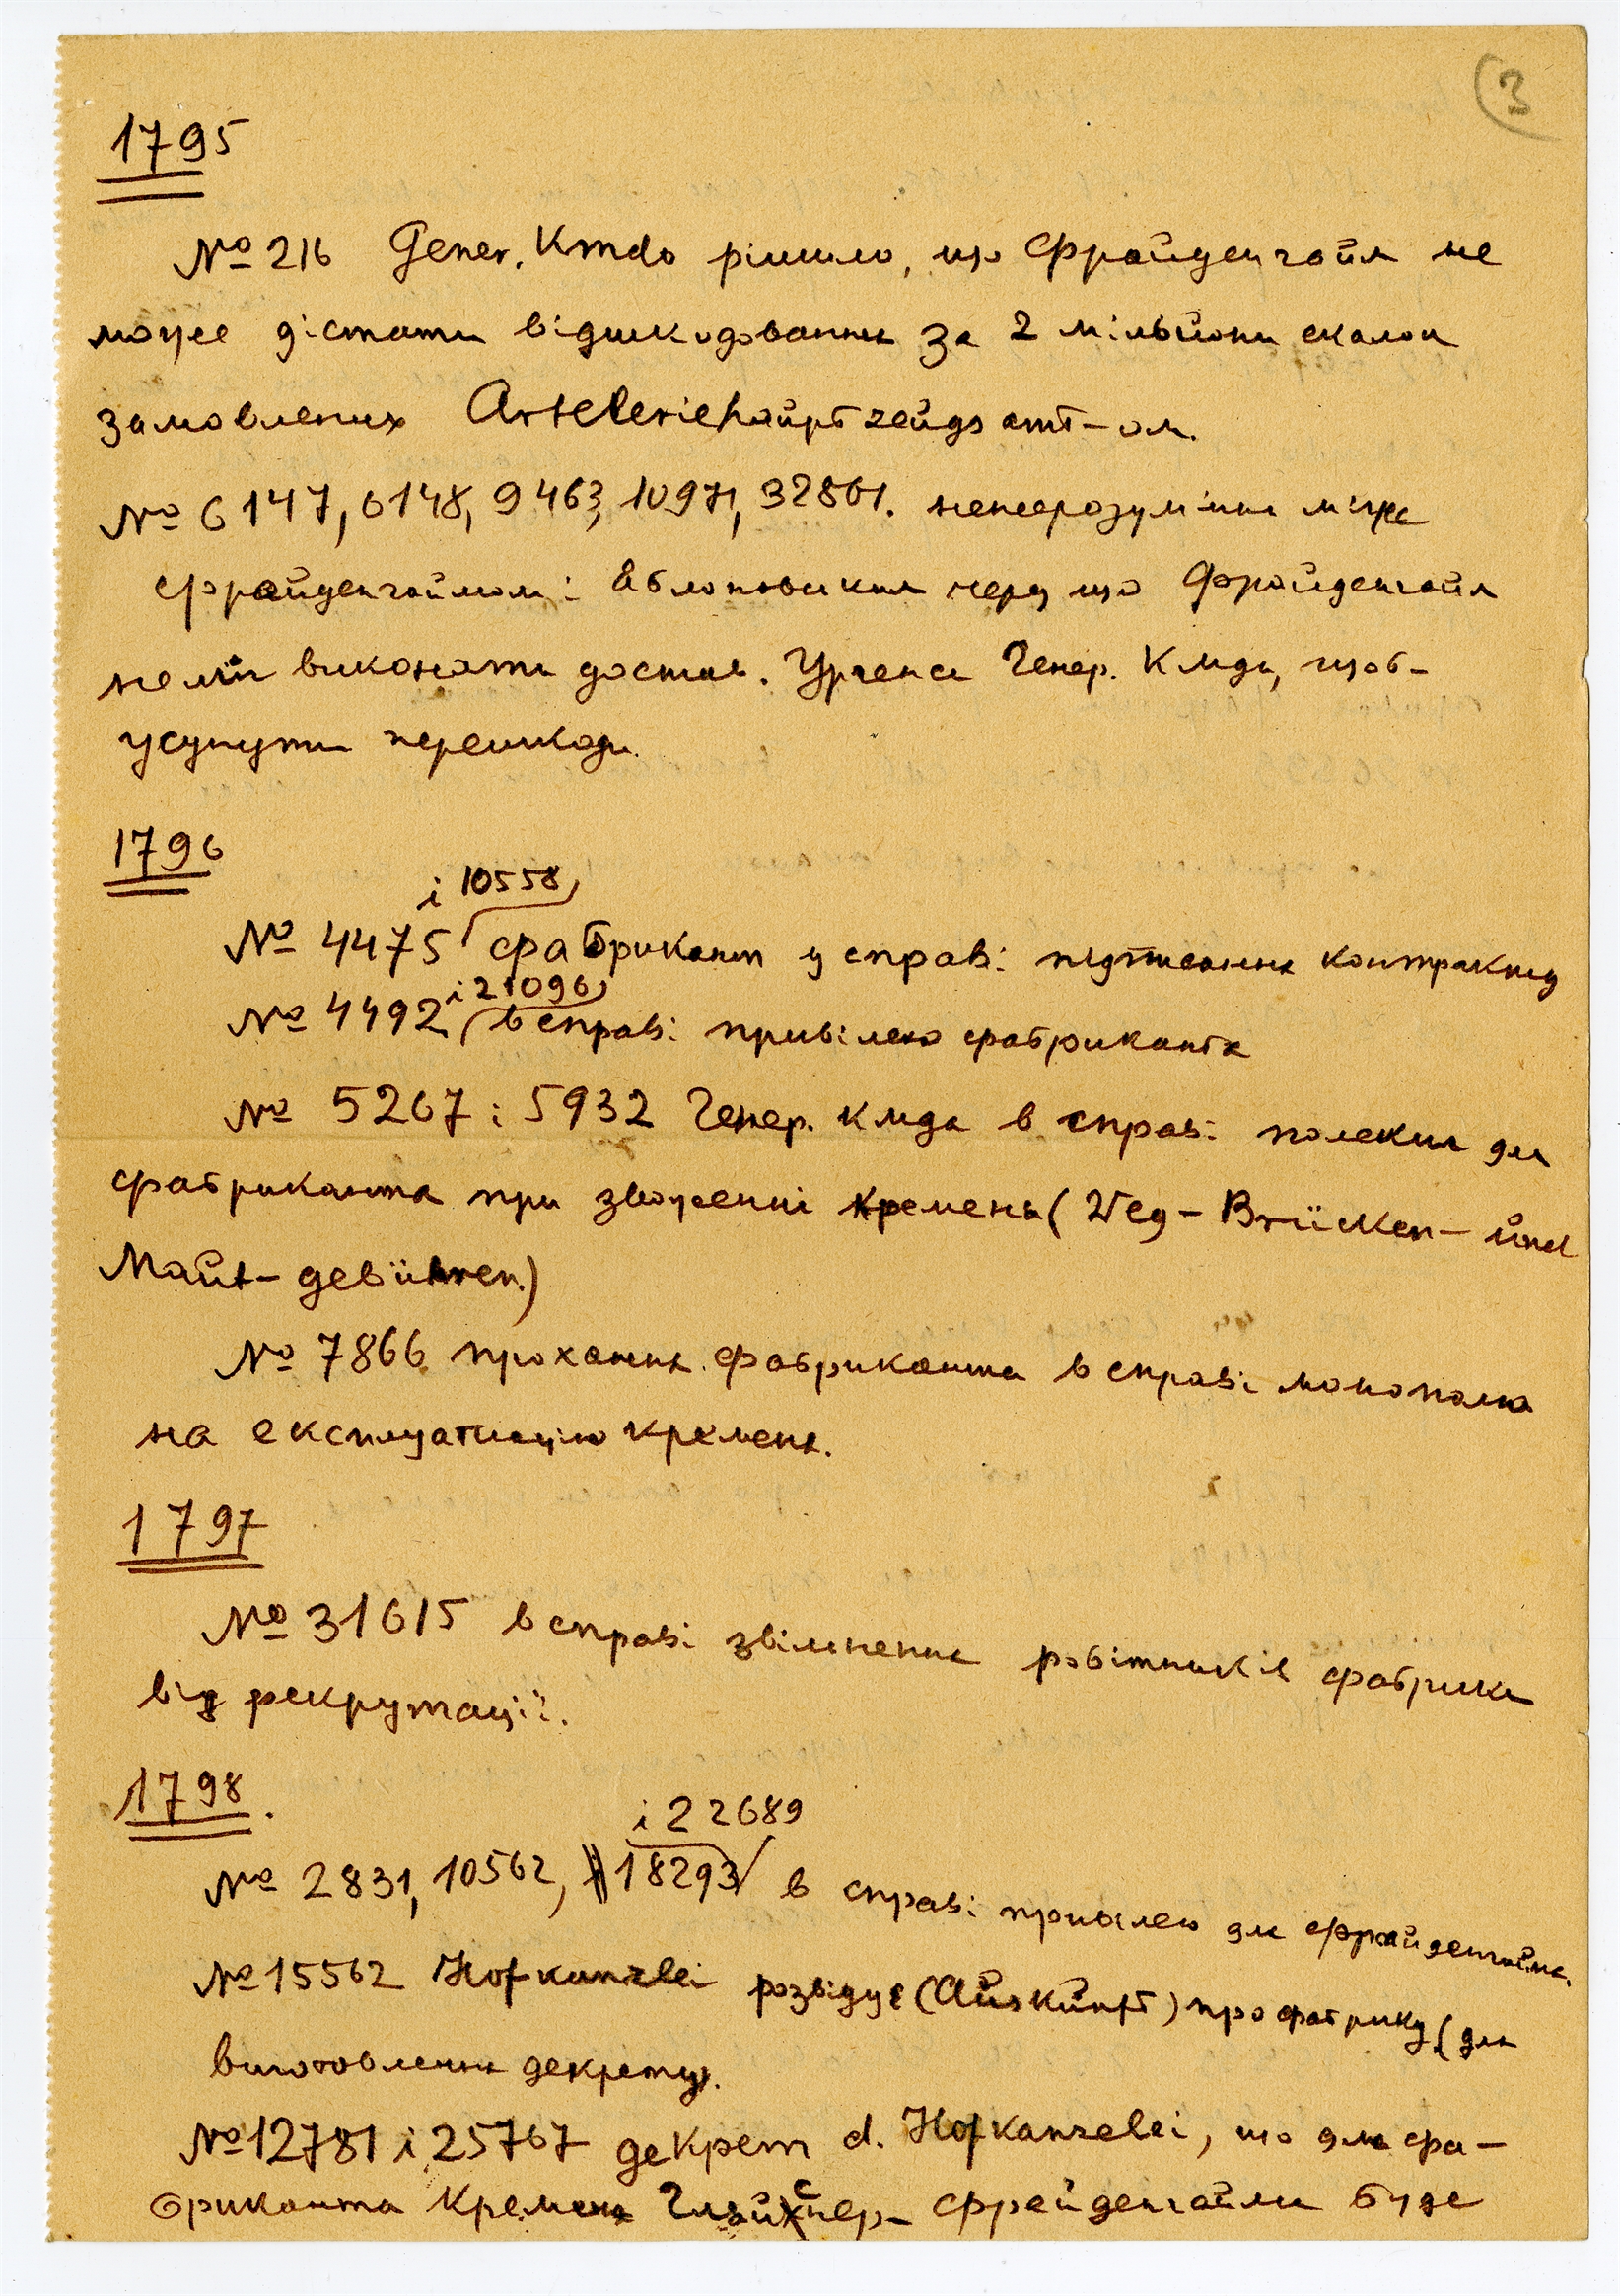 3
1795
№ 216 Gener. Kmdo рішило, що Фрайденгайм не
може дістати відшкодовання за 2 мільйони скалок
замовлених Arteleriehaupt zeugsamt-ом.
№ 6147, 6148, 9463, 10971, 32861. непорозуміння між
Фрайденгаймом і Яблоновским через що Фрайденгайм
не міг виконати достав. Ургенси Генер. Кмди, щоб-
усунути перешкоди.
1796
і 10558,
№ 4475 фабрикант у справі підписання контракту
і 21096,
№ 4492 в справі привілею фабриканта
№ 5267 і 5932 Генер. Кмда в справі полекш для
фабриканта при звоженні кремення (Weg-Brücken- und
Maut-gebühren.)
№ 7866 прохання фабриканта в справі монополю
на експлуатацію кременя.
1797
№ 31615 в справі звільнення робітників фабрики
від рекрутації.
1798.
і 22689
№ 2831, 10562, 18293 в справі привілею для Фрайденгайма.
№ 15562 Hofkanzlei розвідує (Auskunft) про фабрику (для
виготовлення декрету).
№ 12781 і 25767 декрет d. Hofkanzelei, що для фа-
бриканта кременя Глайснер-Фрейденгайма буде